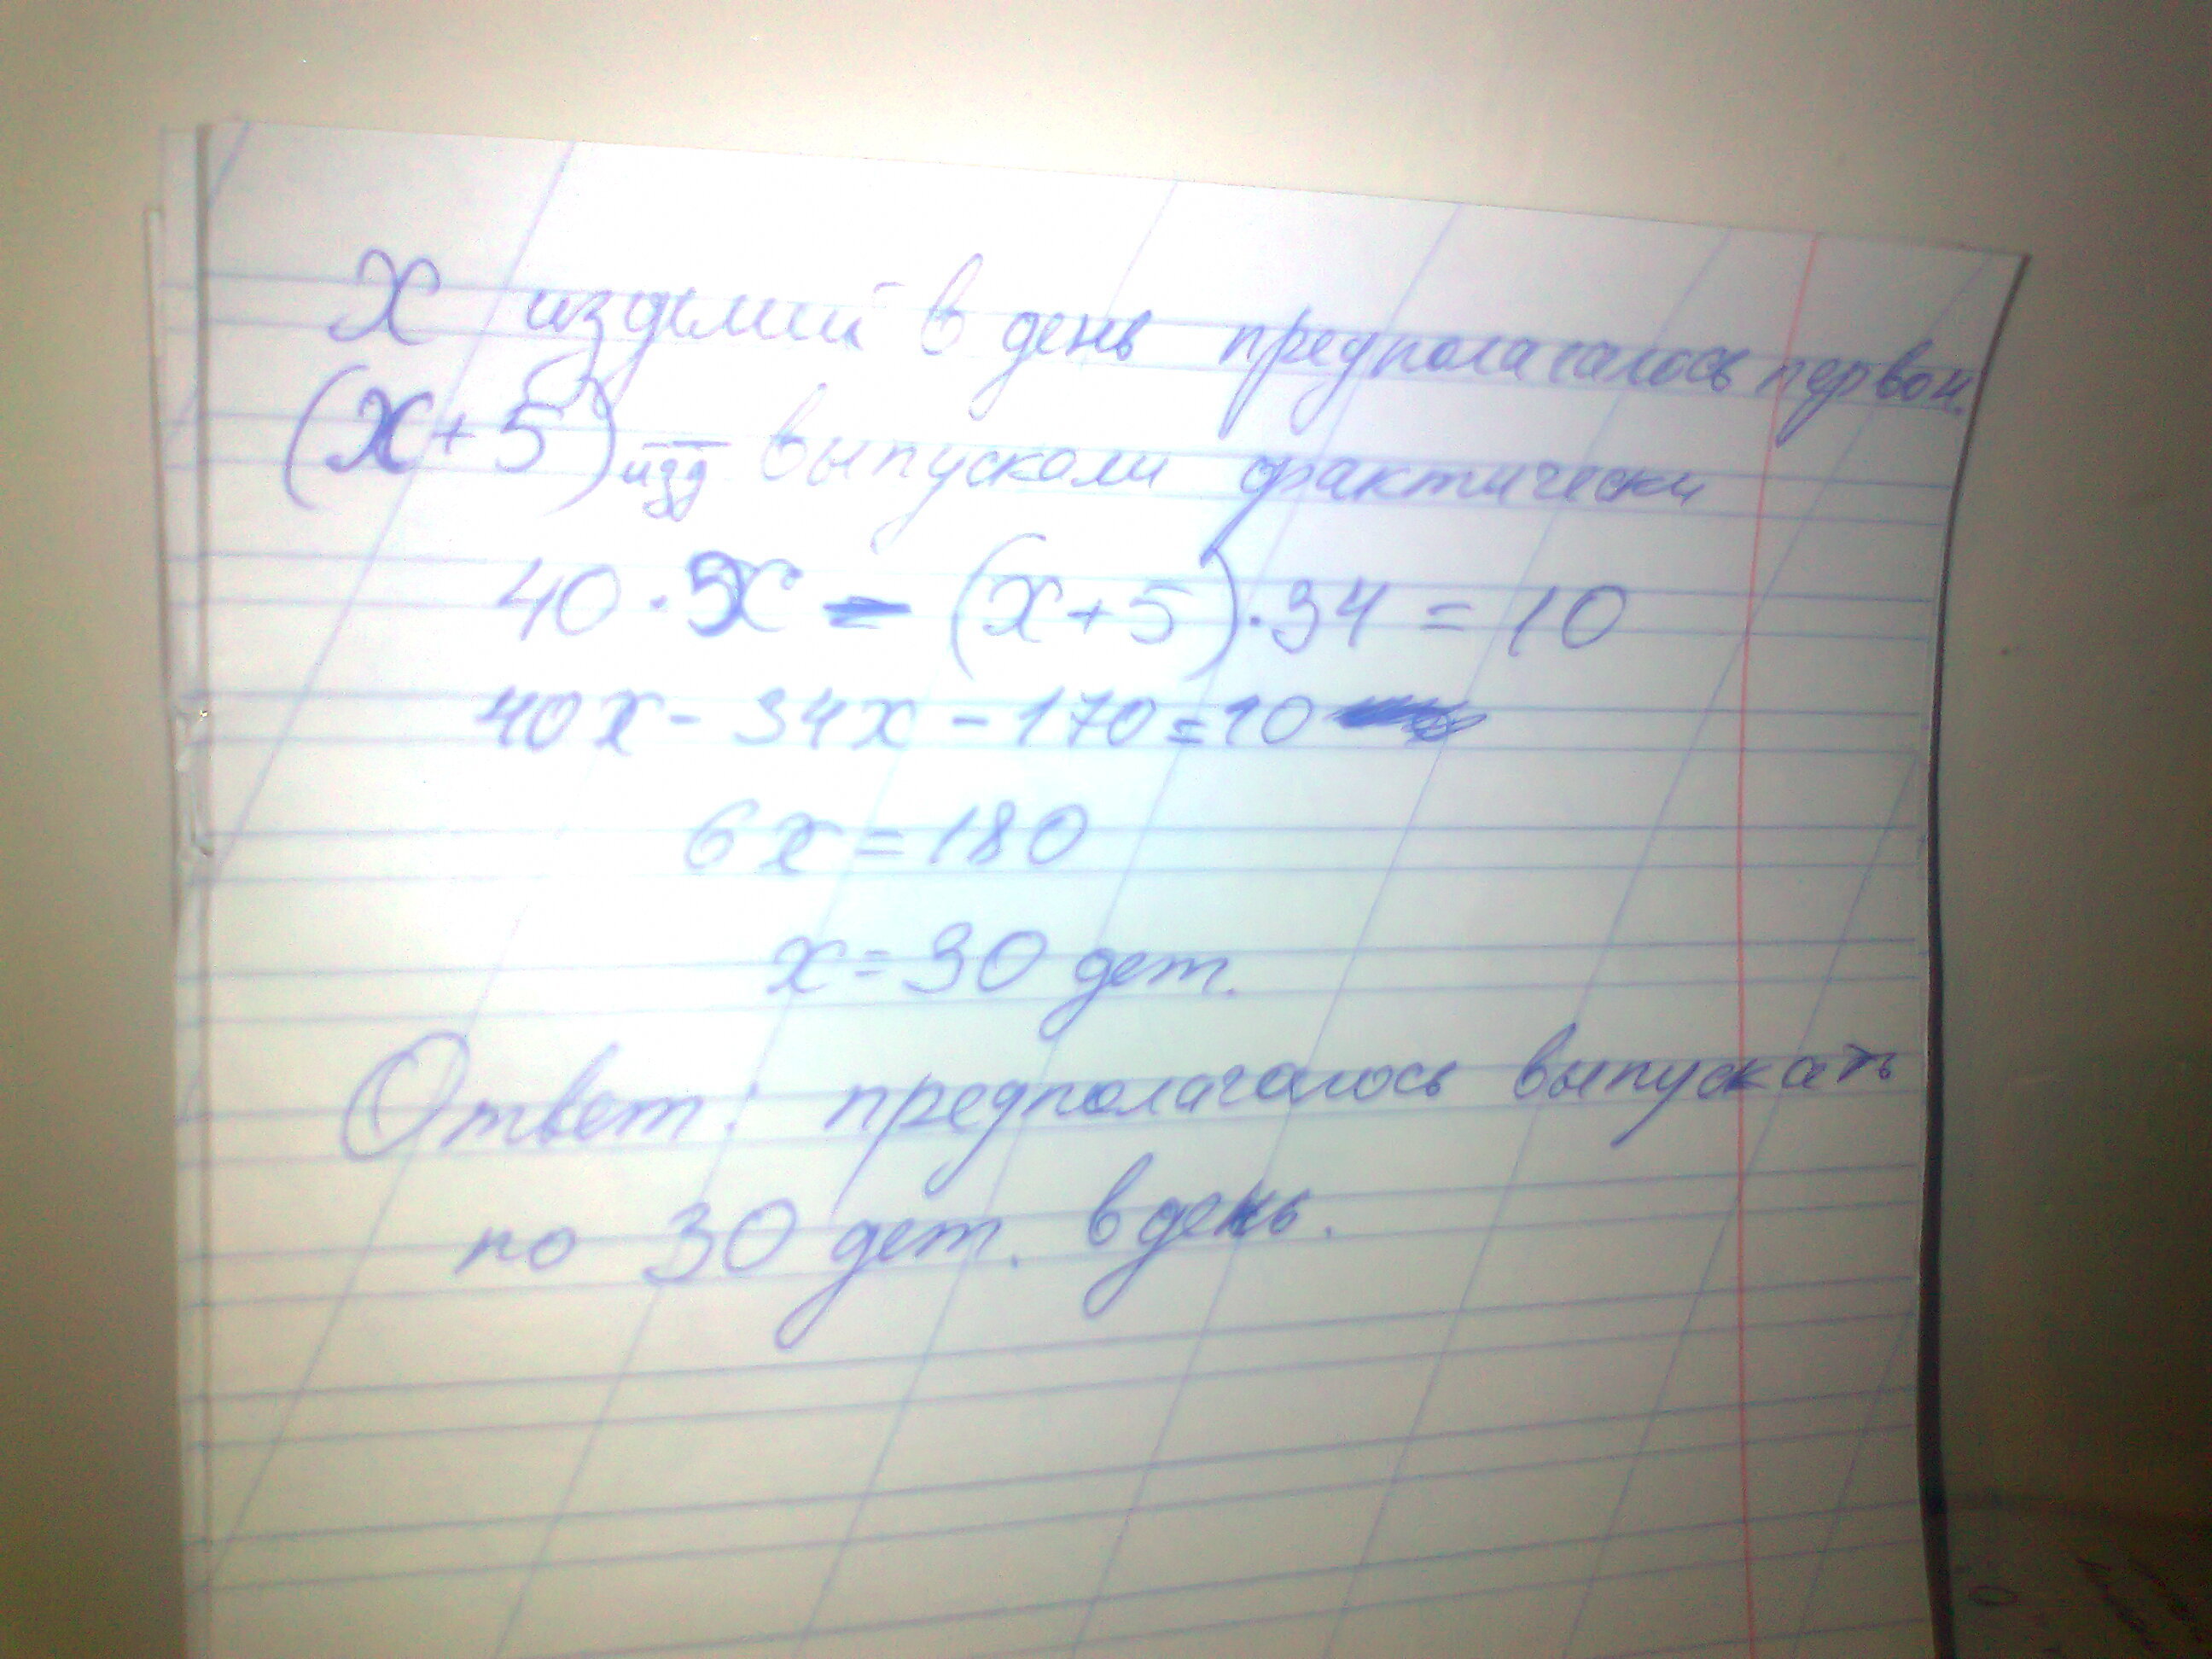 х изделий в день предполагалось первон.
(х+5) изд выпускали фактически
40·х - (х+5)·34 = 10
40х - 34х - 170 = 10
6х = 180
х = 30 дет.
Ответ: предполагалось выпускать
по 30 дет. в день.